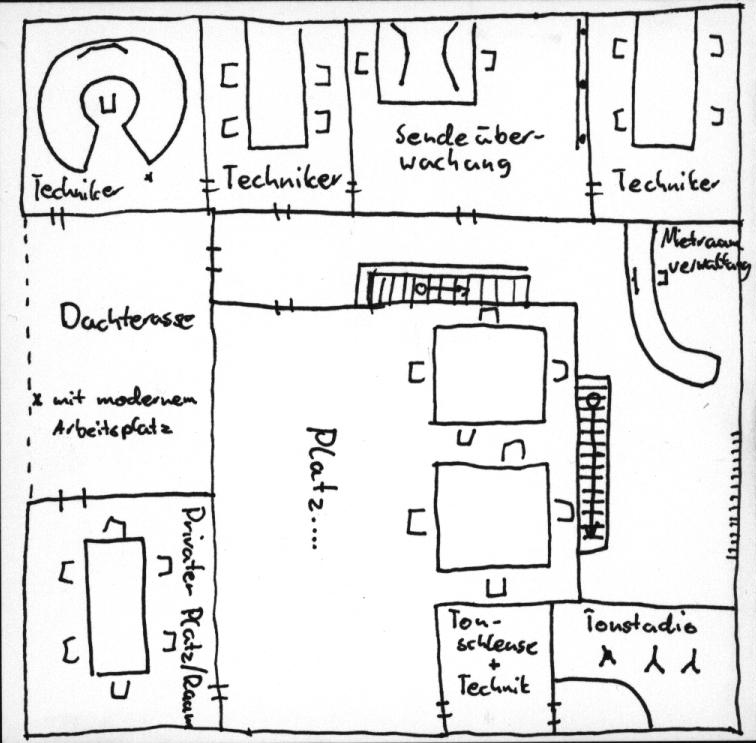 Techniker
*
Techniker
Sendeüber-
wachung
Techniker
Mietraum
verwaltung
Dachterasse
* mit modernem
Arbeitsplatz
Platz....
Privater Platz/Raum
Ton-
schleuse
+
Technik
Tonstudio